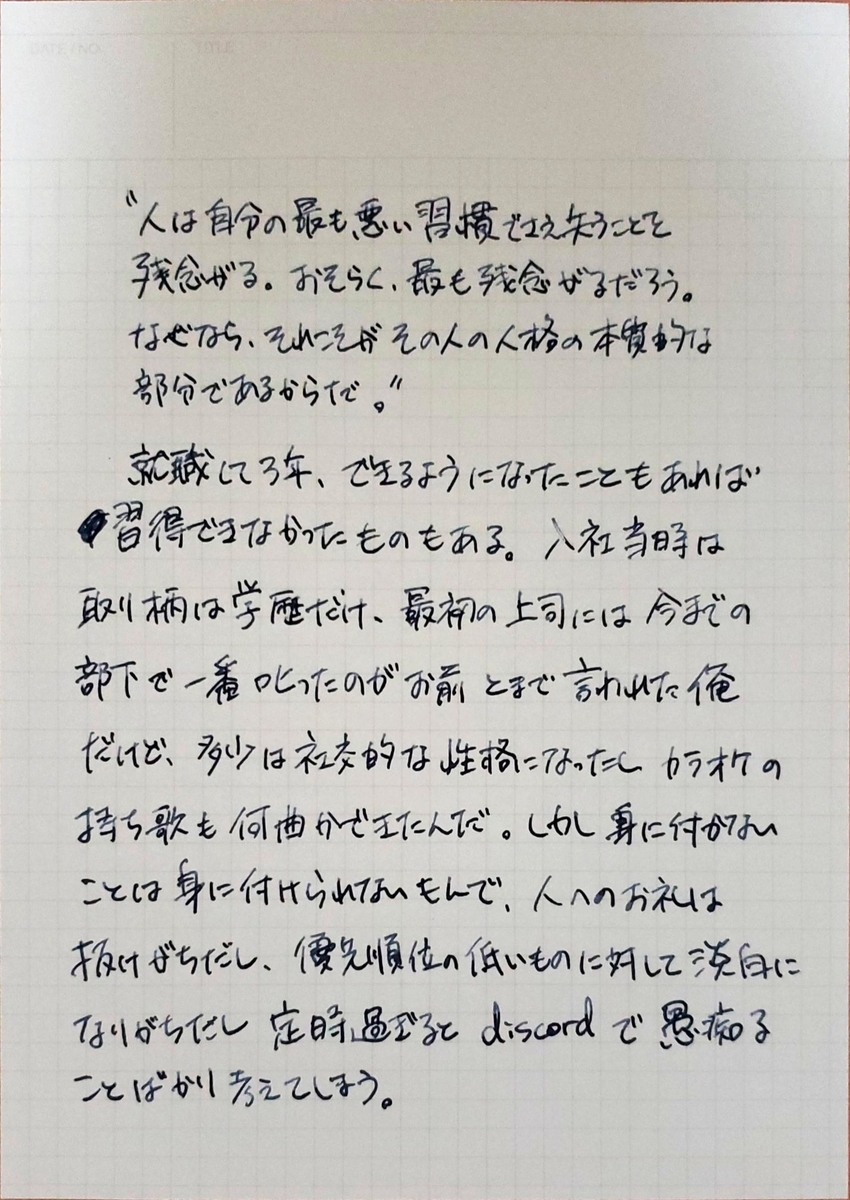 DATE / NO.
TITLE
"人は自分の最も悪い習慣でさえ失うことを
残念がる。おそらく、最も残念がるだろう。
なぜなら、それこそがその人の人格の本質的な
部分であるからだ。"
就職して3年、できるようになったこともあれば
習得できなかったものもある。入社当時は
取り柄は学歴だけ、最初の上司には今までの
部下で一番叱ったのがお前とまで言われた俺
だけど、多少は社交的な性格になったし カラオケの
持ち歌も何曲かできたんだ。しかし身に付かない
ことは身に付けられないもんで、人へのお礼は
抜けがちだし、優先順位の低いものに対して淡白に
なりがちだし 定時過ぎるとdiscordで愚痴る
ことばかり考えてしまう。